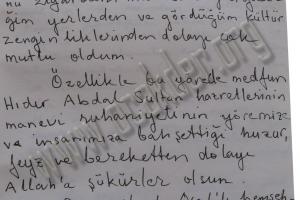 ğim yerlerden ve gördüğüm kültür
zenginliklerinden dolayı çok
mutlu oldum.
Özellikle bu yörede medfun
Hıdır Abdal Sultan hazretlerinin
manevi ruhaniyetinin yöremize
ve insanımıza bahşettiği huzur,
feyz ve bereketten dolayı
Allah'a şükürler olsun.